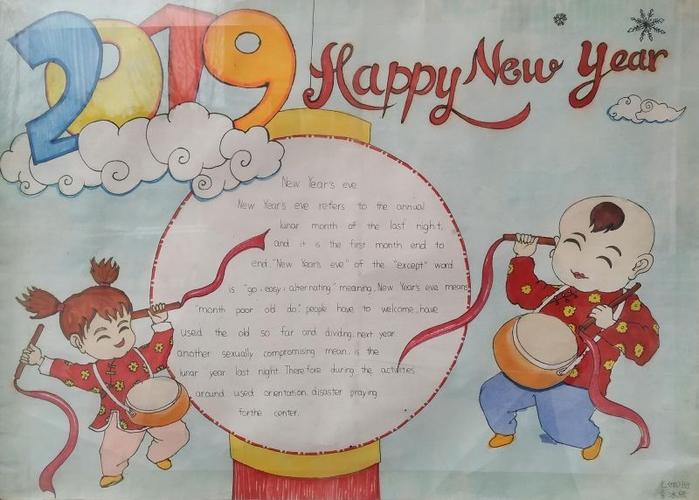 2019
Happy New Year
New Year's eve
New Year's eve refers to the annual
lunar month of the last night,
and it is the first month end to
end. "New Year's eve" of the "except" word
is "go, easy, alternating" meaning, New Year's eve means
"month poor old do." people have to welcome, have
used the old so far and dividing, next year
another sexually compromising mean. is the
lunar year last night. Therefore during the activities
around used orientation, disaster praying
forthe center.